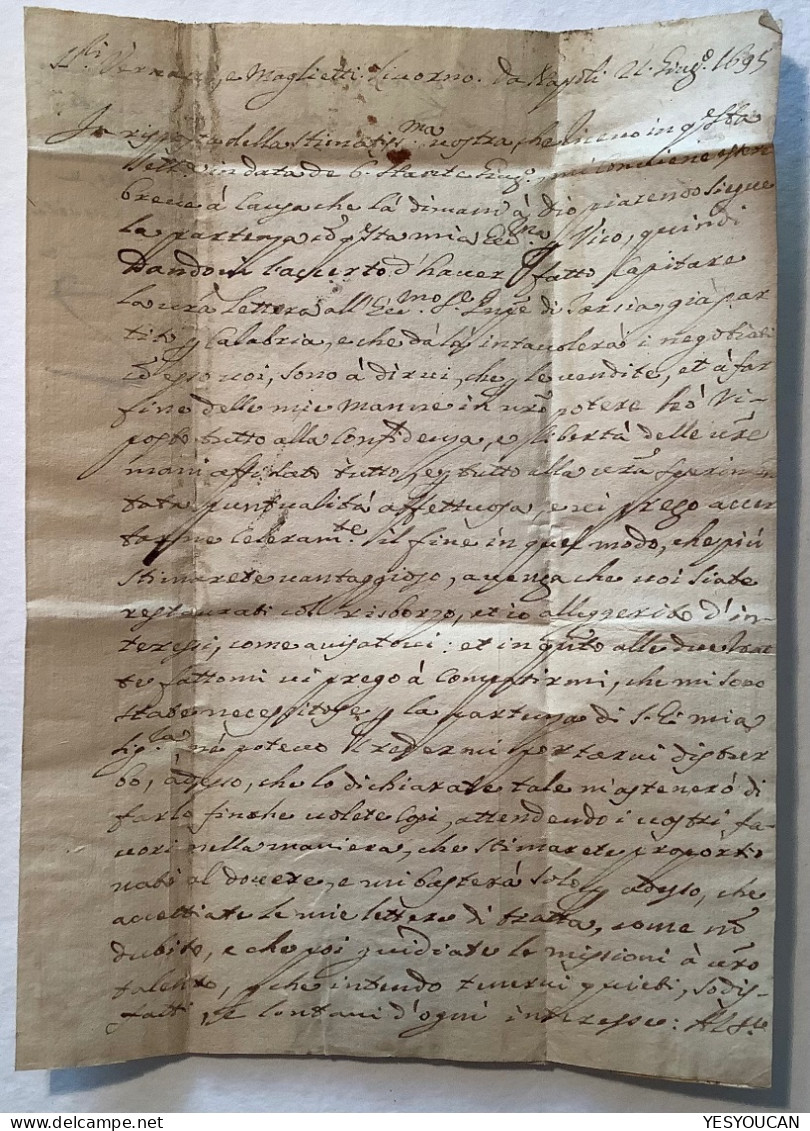 e Maglietti. Livorno. da Napoli 21. Giug.º 1695
In risposta della stimatiss.ma vostra, che ricevo in
in data de 6. stante Giug.º, mi conviene esser
breve à causa che là dimani à Dio piacendo siegue
la partenza mia Ecc.ma Vico, quindi
Dandovi l'accerto d'haver fatto capitare
la vr̃a lettera all'Ecc.mo S.e di Tarsia, già par
tito p Calabria, e che da là intavolerà i negotiati
cõ esso voi, sono à dirvi, che p le vendite, et à far
fine delle mie Manne in vr̃o potere hò ri-
posto tutto alla confidenza, e libertà delle vr̃e
mani affidato tutto, e p tutto alla vr̃a sperim
tata puntualità affettuosa, e vi prego accer
tarne celeram.te il fine in quel modo, che più
stimarete vantaggioso, acciò che voi siate
restaurati col risborzo, et io alleggerito d'in-
teressi, come avisatovi: et in quto alle due trat
te fattomi vi prego à compatirmi, che mi sono
state necessitose p la partenza di S. E. mia
Sig.ra, nè potevo credermi portarvi distur
bo, adesso, che lo dichiarate tale m'astenerò di
farlo finche volete così, attendendo i vostri fa
vori nella maniera, che stimarete proportio
nati al dovere, e mi basterà solo p adesso, che
accettiate le mie lettere di tratta, come nõ
dubito, e che poi guidiate le missioni à vr̃o
talento, p che intendo tenervi quieti, sodis-
fatti, e lontani d'ogni interesse:
YESYOUCAN